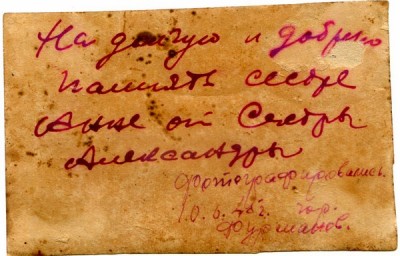 На долгую и добрую
память сестре
Анне от Сестры
Александры
Фотографировались
гор.
Фурманов.